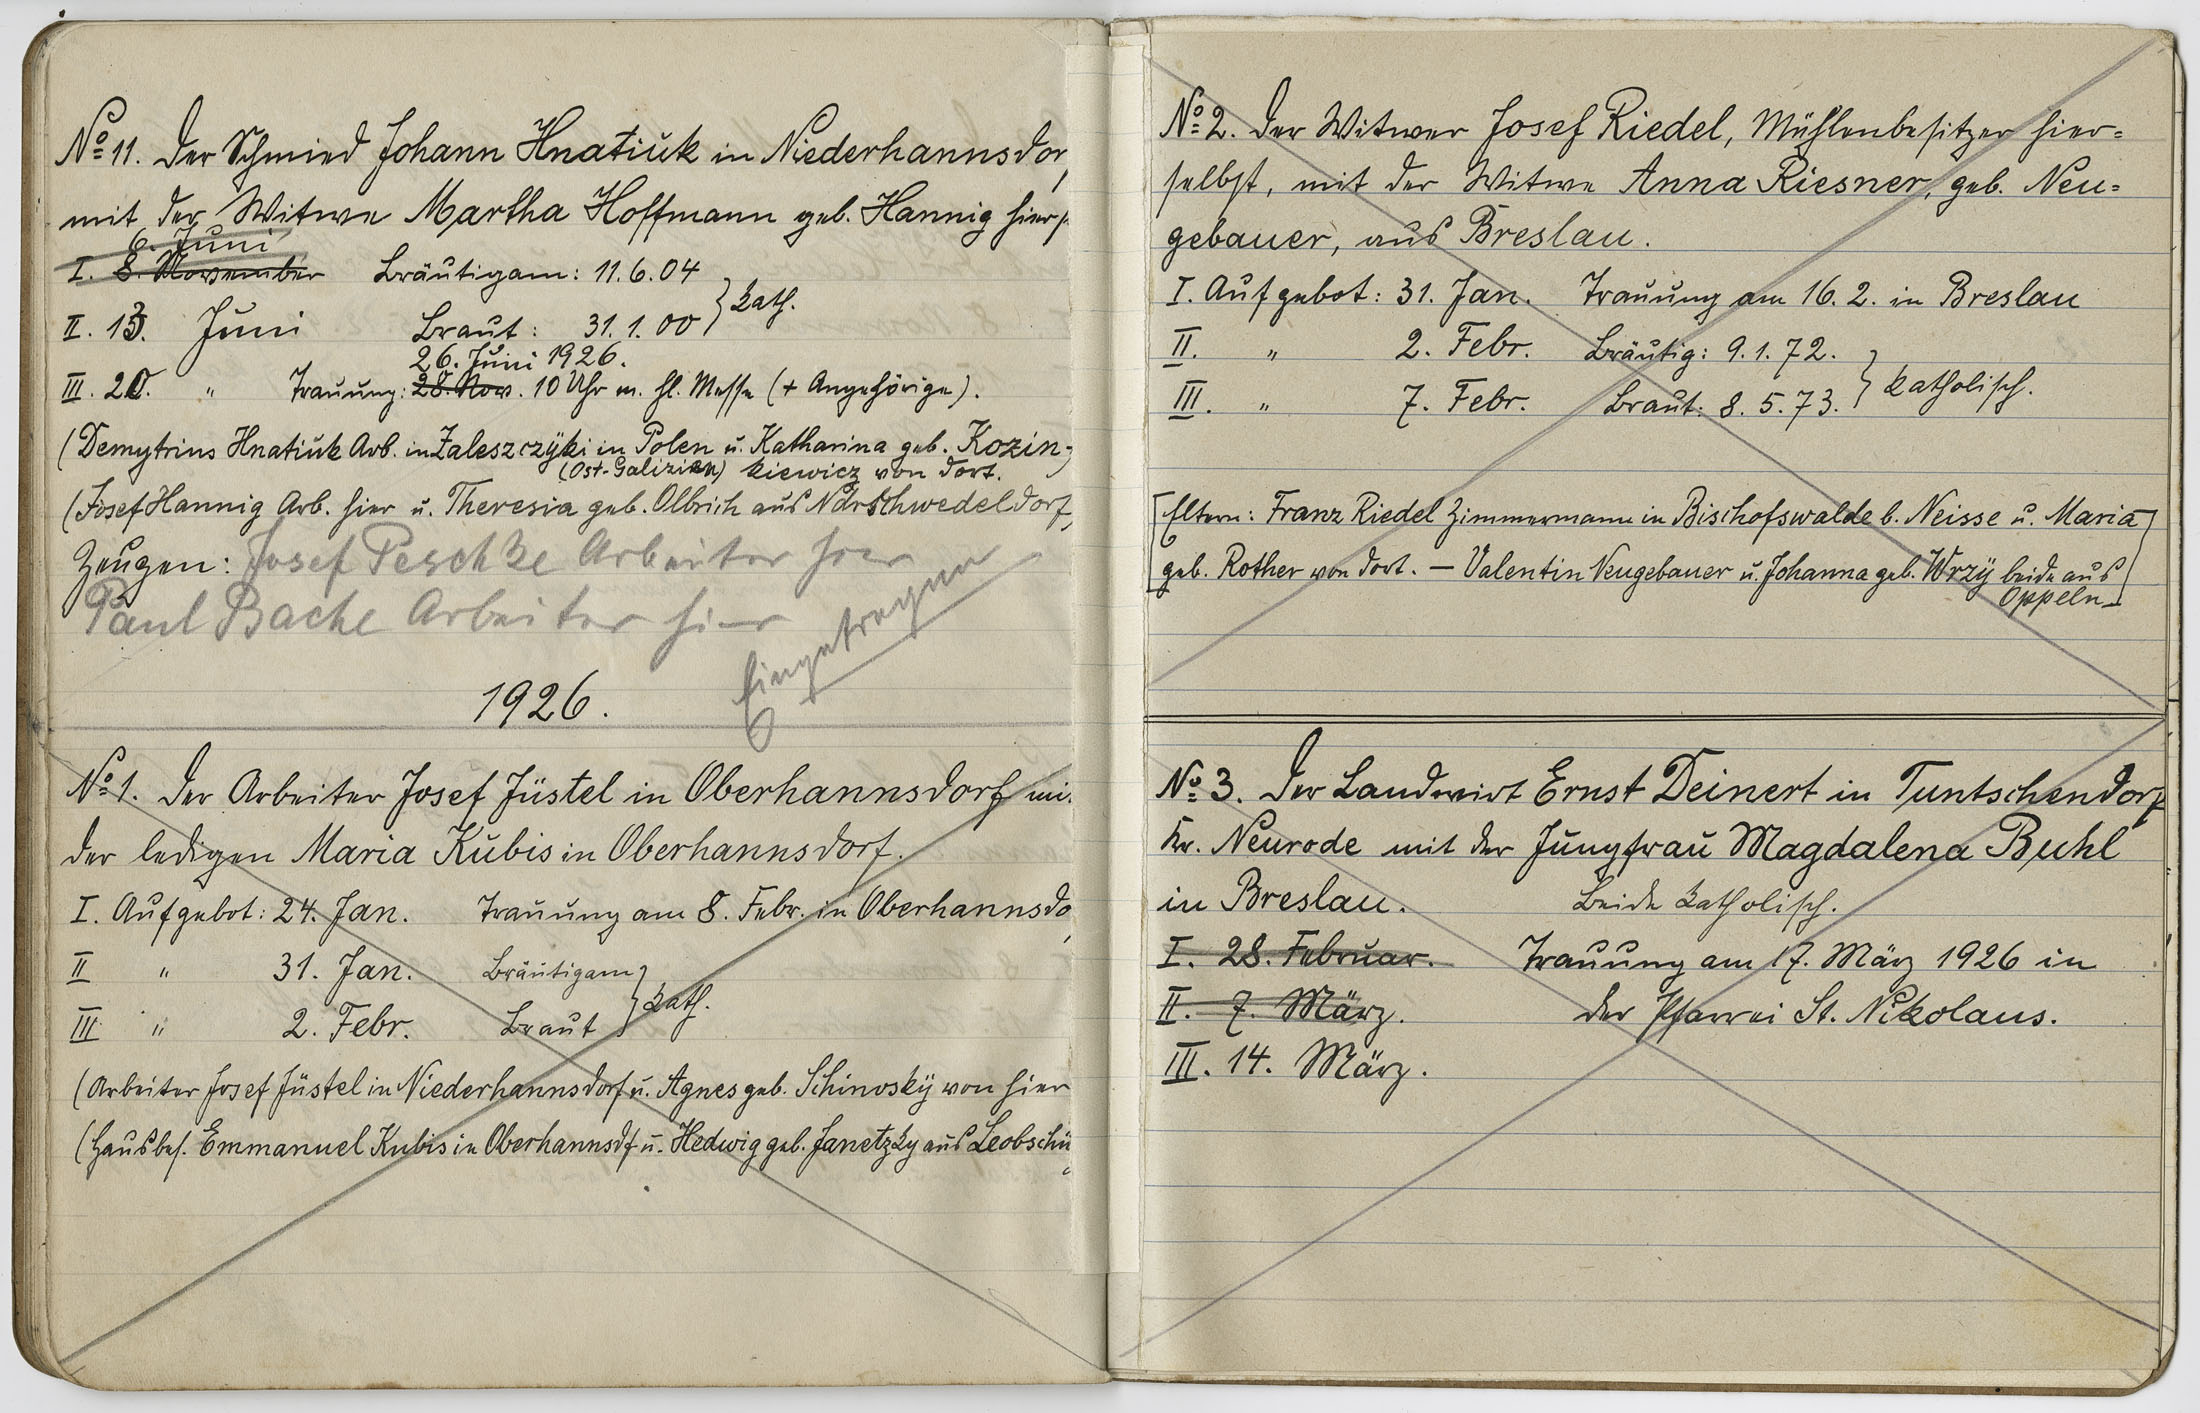 No 11. Der Schmied Johann Hnatiuk in Niederhannsdor
mit der Witwe Martha Hoffmann geb. Hannig hiers
6. Juni
I. 8. November Bräutigam: 11.6.04
II. 13. Juni Braut: 31.1.00 } kath.
26. Juni 1926.
III. 20. " Trauung: 28. Nov. 10 Uhr m. hl. Messe (+ Angehörige).
(Demytrius Hnatiuk Arb. in Zaleszczyki in Polen u. Katharina geb. Kozin-
(Ost-Galizien) kiewicz von dort.
(Josef Hannig Arb. hier u. Theresia geb. Olbrich aus Ndrschwedeldorf,
Zeugen: Josef Peschke Arbeiter hier
Paul Bache Arbeiter hier
Eingetragen
1926.
No 1. Der Arbeiter Josef Jüstel in Oberhannsdorf mi
der ledigen Maria Kubis in Oberhannsdorf.
I. Aufgebot: 24. Jan. Trauung am 8. Febr. in Oberhannsdo
II " 31. Jan. Bräutigam
III " 2. Febr. Braut } kath.
(Arbeiter Josef Jüstel in Niederhannsdorf u. Agnes geb. Schinosky von hier
(Hausbes. Emmanuel Kubis in Oberhannsdf u. Hedwig geb. Janetzky aus Leobschü
No 2. Der Witwer Josef Riedel, Mühlenbesitzer hier=
selbst, mit der Witwe Anna Riesner, geb. Neu=
gebauer, aus Breslau.
I. Aufgebot: 31. Jan. Trauung am 16. 2. in Breslau
II. " 2. Febr. Bräutig: 9. 1. 72.
III. " 7. Febr. Braut: 8. 5. 73. } katholisch.
[Eltern: Franz Riedel Zimmermann in Bischofswalde b. Neisse u. Maria
geb. Rother von dort. — Valentin Neugebauer u. Johanna geb. Wrzy beide aus
Oppeln]
No 3. Der Landwirt Ernst Deinert in Tuntschendorf
Kr. Neurode mit der Jungfrau Magdalena Buhl
in Breslau. Beide katholisch.
I. 28. Februar. Trauung am 17. März 1926 in
II. 7. März. der Pfarrei St. Nikolaus.
III. 14. März.